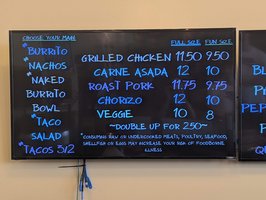 CHOOSE YOUR MAIN
*BURRITO
*NACHOS
*NAKED
BURRITO
BOWL
*TACO
SALAD
*TACOS 3/2
FULL SIZE FUN SIZE
GRILLED CHICKEN 11.50 9.50
CARNE ASADA 12 10
ROAST PORK 11.75 9.75
CHORIZO 12 10
VEGGIE 10 8
~DOUBLE UP FOR 2.50~
*CONSUMING RAW OR UNDERCOOKED MEATS, POULTRY, SEAFOOD,
SHELLFISH OR EGGS MAY INCREASE YOUR RISK OF FOODBORNE
ILLNESS